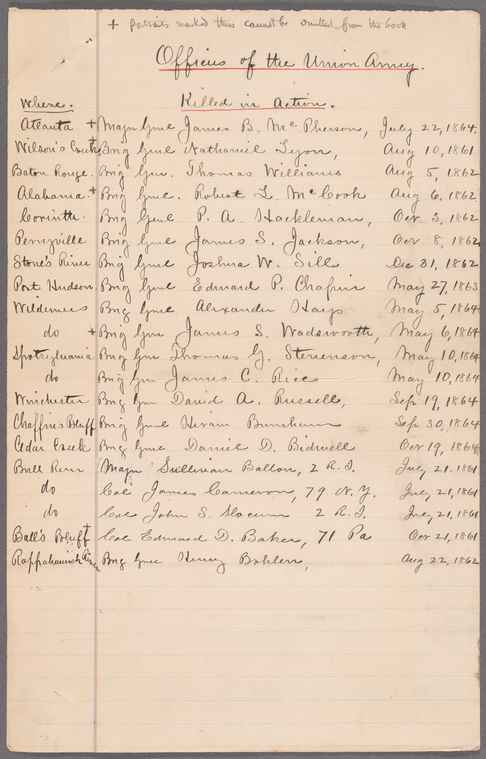 + Portraits marked thus cannot be omitted from the book
Officers of the Union Army.
Where. Killed in Action.
Atlanta + Majr Genl James B. McPherson, July 22, 1864.
Wilson's Creek + Brig Genl Nathaniel Lyon, Aug 10, 1861
Baton Rouge. Brig Gen. Thomas Williams Aug 5, 1862
Alabama + Brig Genl. Robert L. McCook Aug 6, 1862
Corinth Brig Genl P. A. Hackleman, Oct 3, 1862
Perryville Brig Genl James S. Jackson, Oct 8, 1862
Stone's River Brig Genl Joshua W. Sill Dec 31, 1862
Port Hudson Brig Genl Edmund P. Chapin May 27, 1863
Wilderness Brig Genl Alexander Hays May 5, 1864
do + Brig Gen James S. Wadsworth, May 6, 1864
Spotsylvania Brig Gen Thomas G. Stevenson, May 10, 1864
do Brig Gen James C. Rice May 10, 1864
Winchester Brig Gen David A. Russell, Sep 19, 1864
Chaffin's Bluff Brig Genl Hiram Burnham Sep 30, 1864
Cedar Creek Brig Genl Daniel D. Bidwell Oct 19, 1864
Bull Run Majr Sullivan Ballou, 2 R.I. July 21, 1861
do Col James Cameron, 79 N.Y. July 21, 1861
do Col John S. Slocum 2 R.I. July 21, 1861
Ball's Bluff + Col Edmund D. Baker, 71 Pa Oct 21, 1861
Rappahannock Brig Genl Henry Bohlen, Aug 22, 1862